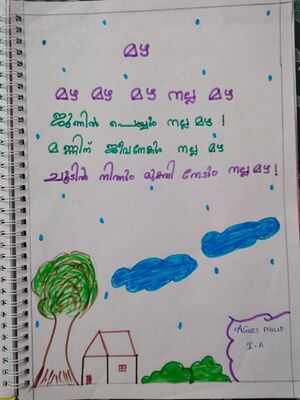 മഴ
മഴ മഴ മഴ നല്ല മഴ
ജൂണിൽ പെയ്യും നല്ല മഴ !
മണ്ണിന് ജീവനേകും നല്ല മഴ
ചൂടിൽ നിന്നും മുക്തി നേടും നല്ല മഴ !
AGNES PHILIP
I - A